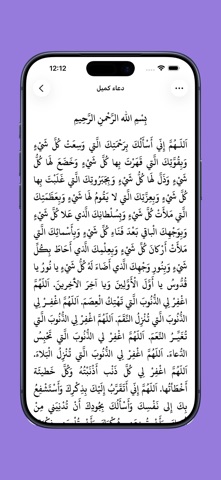 12:12
دعاء كميل
بِسْمِ اللهِ الرَّحْمٰنِ الرَّحِيْمِ
اَللّهُمَّ إِنّي أَسْأَلُكَ بِرَحْمَتِكَ الَّتي وَسِعَتْ كُلَّ شَيْءٍ
وَبِقُوَّتِكَ الَّتي قَهَرْتَ بِها كُلَّ شَيْءٍ وَخَضَعَ لَها كُلُّ
شَيْءٍ وَذَلَّ لَها كُلُّ شَيْءٍ وَبِجَبَرُوتِكَ الَّتي غَلَبْتَ بِها
كُلَّ شَيْءٍ وَبِعِزَّتِكَ الَّتي لا يَقُومُ لَها شَيْءٌ وَبِعَظَمَتِكَ
الَّتي مَلأَتْ كُلَّ شَيْءٍ وَبِسُلْطانِكَ الَّذي عَلا كُلَّ شَيْءٍ
وَبِوَجْهِكَ الْباقي بَعْدَ فَناءِ كُلِّ شَيْءٍ وَبِأَسْمائِكَ الَّتي
مَلأَتْ أَرْكانَ كُلِّ شَيْءٍ وَبِعِلْمِكَ الَّذي أَحاطَ بِكُلِّ
شَيْءٍ وَبِنُورِ وَجْهِكَ الَّذي أَضاءَ لَهُ كُلُّ شَيْءٍ يا نُورُ يا
قُدُّوسُ يا أَوَّلَ الأَوَّلينَ وَيا آخِرَ الآخِرينَ. اَللّهُمَّ
اغْفِرْ لِيَ الذُّنُوبَ الَّتي تَهْتِكُ الْعِصَمَ، اَللّهُمَّ اغْفِرْ لِيَ
الذُّنُوبَ الَّتي تُنْزِلُ النِّقَمَ، اَللّهُمَّ اغْفِرْ لِيَ الذُّنُوبَ الَّتي
تُغَيِّرُ النِّعَمَ، اَللّهُمَّ اغْفِرْ لِيَ الذُّنُوبَ الَّتي تَحْبِسُ
الدُّعاءَ، اَللّهُمَّ اغْفِرْ لِيَ الذُّنُوبَ الَّتي تُنْزِلُ الْبَلاءَ،
اَللّهُمَّ اغْفِرْ لي كُلَّ ذَنْبٍ أَذْنَبْتُهُ وَكُلَّ خَطيئَةٍ
أَخْطَأْتُها، اَللّهُمَّ إِنّي أَتَقَرَّبُ إِلَيْكَ بِذِكْرِكَ وَأَسْتَشْفِعُ
بِكَ إِلى نَفْسِكَ وَأَسْأَلُكَ بِجُودِكَ أَنْ تُدْنِيَني مِنْ